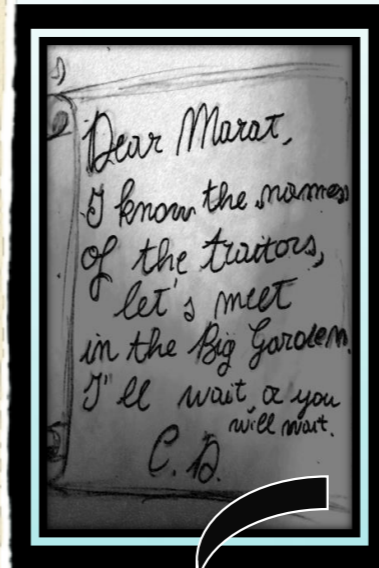 Dear Marat,
I know the names
of the traitors,
let's meet
in the Big Garden.
I'll wait, or you
will wait.
C. D.